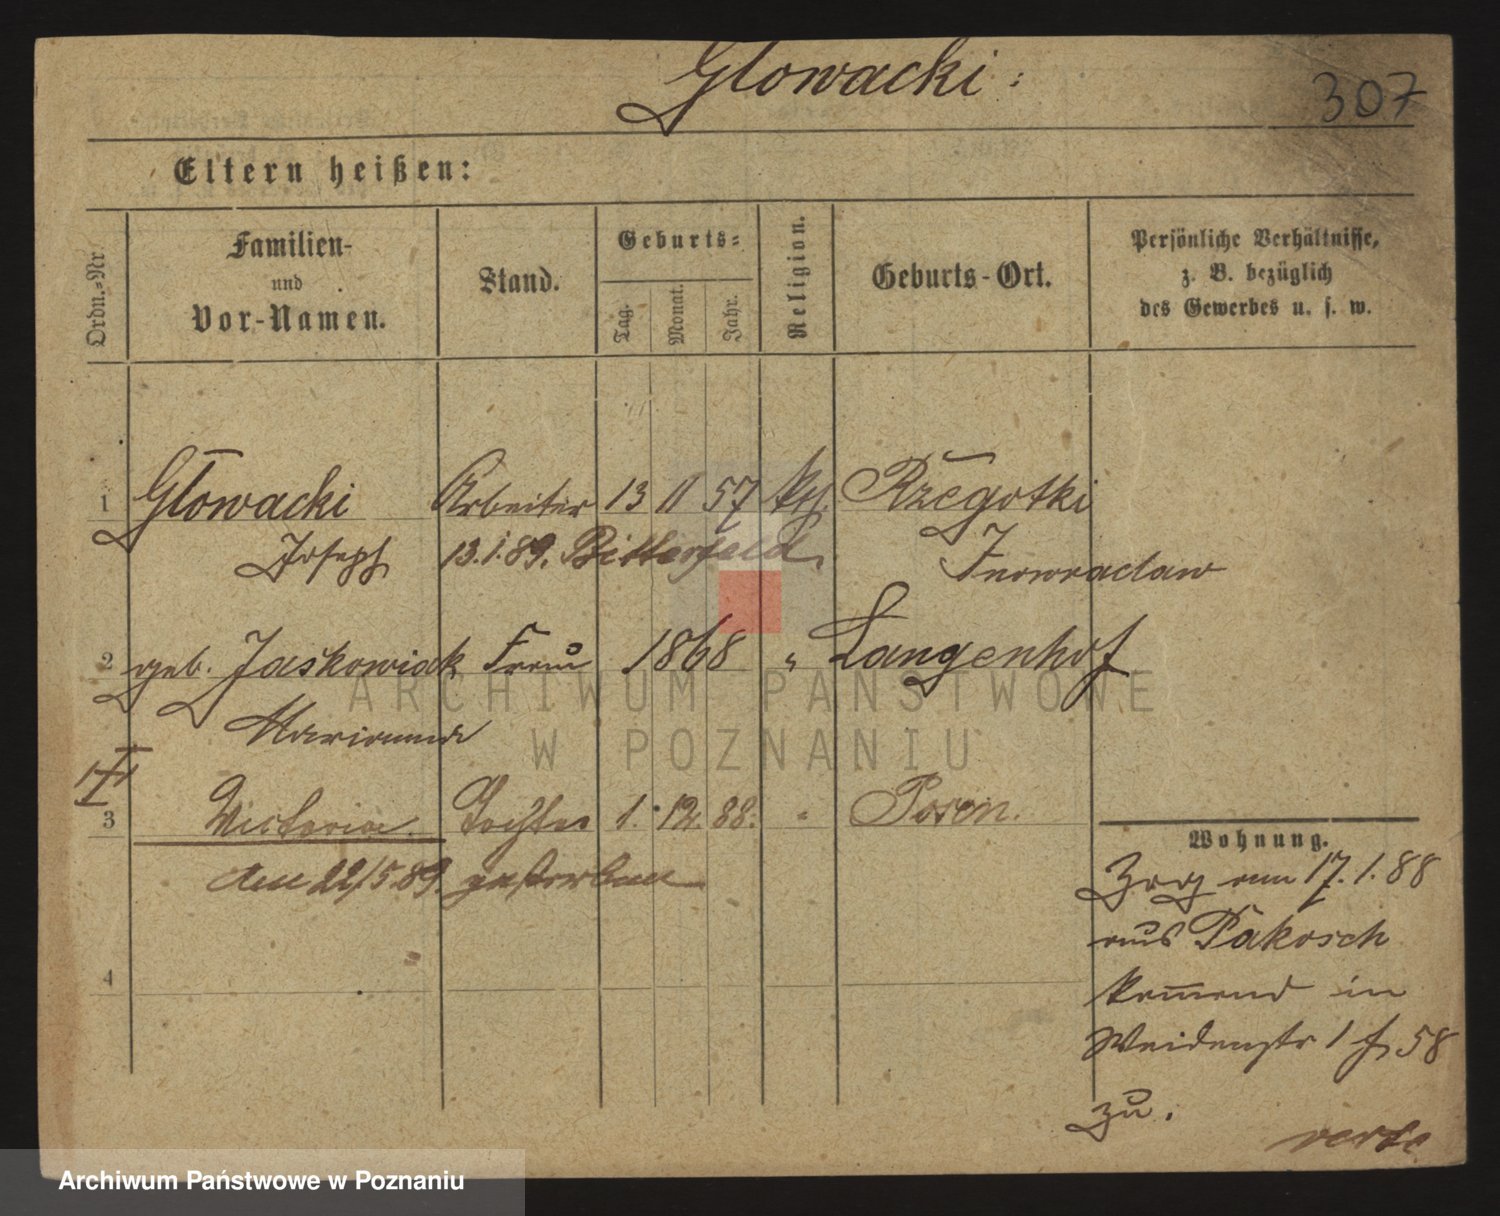 Głowacki:
307
Eltern heißen:
Ordn.-Nr
Familien-
und
Vor-Namen.
Stand.
Geburts-
Tag.
Monat.
Jahr.
Religion.
Geburts-Ort.
Persönliche Verhältnisse,
z. B. bezüglich
des Gewerbes u. s. w.
1 Głowacki Arbeiter 13 11 57 kth. Rzegotki
Joseph 13.1.89. Bitterfeld Inowraclaw
2 geb. Jaśkowiak Frau 1868 " Langenhof
Marianna
ARCHIWUM PAŃSTWOWE
W POZNANIU
3 Victoria Tochter 1. 12. 88. " Posen.
am 22/5.89. gestorben
4
Wohnung.
Zog am 17.1.88
aus Pakosch
kommend in
Weidenstr 1 f. 58
zu.
verte
Archiwum Państwowe w Poznaniu